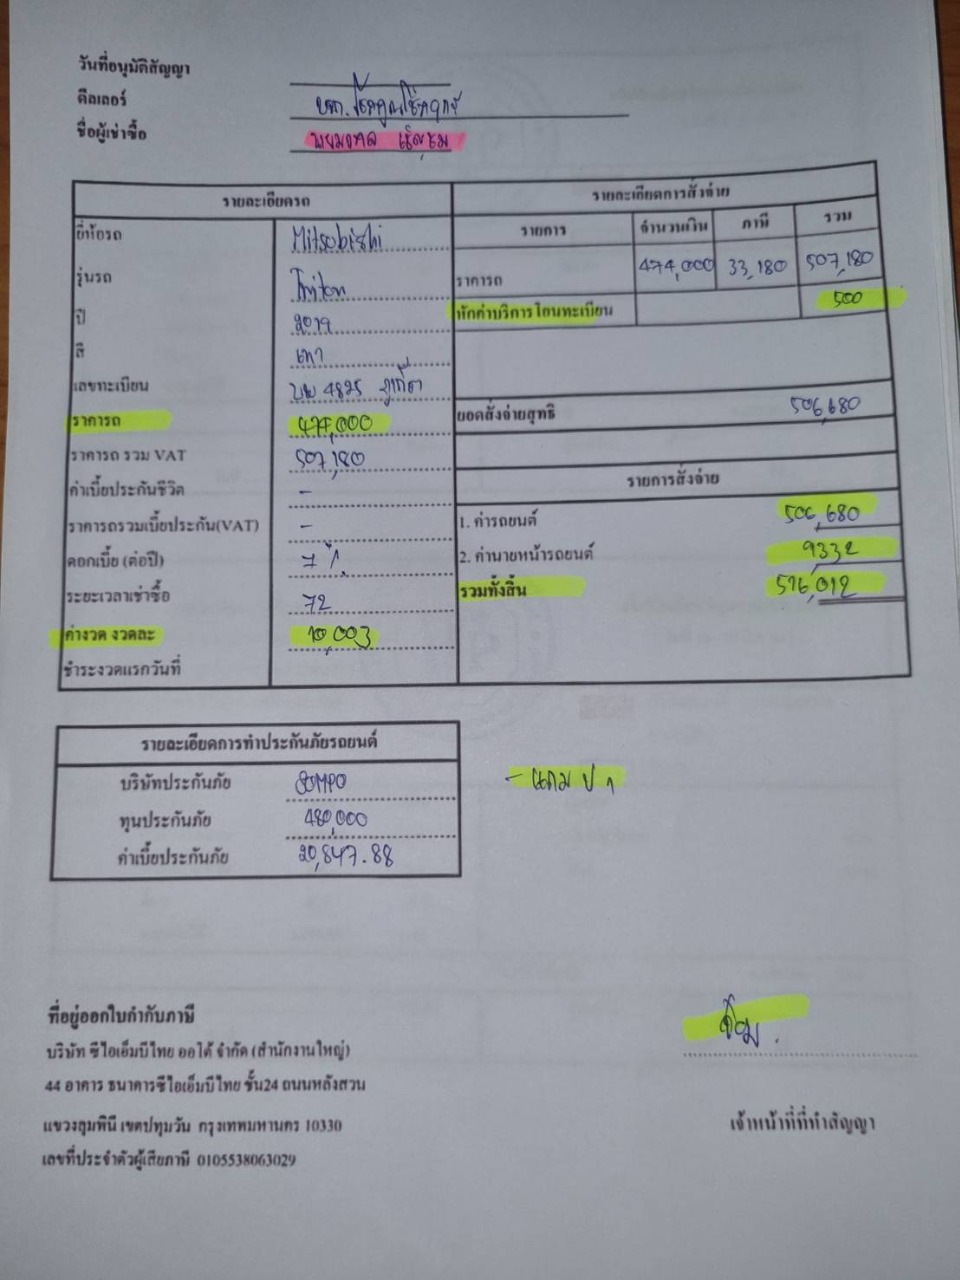 วันที่อนุมัติสัญญา
ดีลเลอร์ หจก.
ชื่อผู้เช่าซื้อ
รายละเอียดรถ
ยี่ห้อรถ Mitsubishi
รุ่นรถ Triton
ปี 2019
สี เทา
เลขทะเบียน 4825 ภูเก็ต
ราคารถ 474,000
ราคารถ รวม VAT 507,180
ค่าเบี้ยประกันชีวิต -
ราคารถรวมเบี้ยประกัน(VAT) -
ดอกเบี้ย (ต่อปี) 7 %
ระยะเวลาเช่าซื้อ 72
ค่างวด งวดละ 10,003
ชำระงวดแรกวันที่
รายละเอียดการสั่งจ่าย
รายการ จำนวนเงิน ภาษี รวม
ราคารถ 474,000 33,180 507,180
หักค่าบริการโอนทะเบียน 500
ยอดสั่งจ่ายสุทธิ 506,680
รายการสั่งจ่าย
1. ค่ารถยนต์ 506,680
2. ค่านายหน้ารถยนต์ 9332
รวมทั้งสิ้น 516,012
รายละเอียดการทำประกันภัยรถยนต์
บริษัทประกันภัย SOMPO
ทุนประกันภัย 480,000
ค่าเบี้ยประกันภัย 20,847.88
- แถม ป 1
ที่อยู่ออกใบกำกับภาษี
บริษัท ซีไอเอ็มบีไทย ออโต้ จำกัด (สำนักงานใหญ่)
44 อาคาร ธนาคารซีไอเอ็มบีไทย ชั้น24 ถนนหลังสวน
แขวงลุมพินี เขตปทุมวัน กรุงเทพมหานคร 10330
เลขที่ประจำตัวผู้เสียภาษี 0105538063029
เจ้าหน้าที่ที่ทำสัญญา